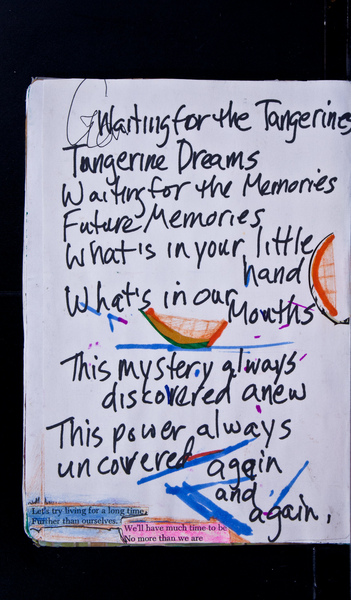 Waiting for the Tangerines
Tangerine Dreams
Waiting for the Memories
Future Memories
What is in your little
hand
What's in our Mouths
This mystery always
discovered anew
This power always
uncovered again
and
again.
Let's try living for a long time.
Further than ourselves.
We'll have much time to be
No more than we are